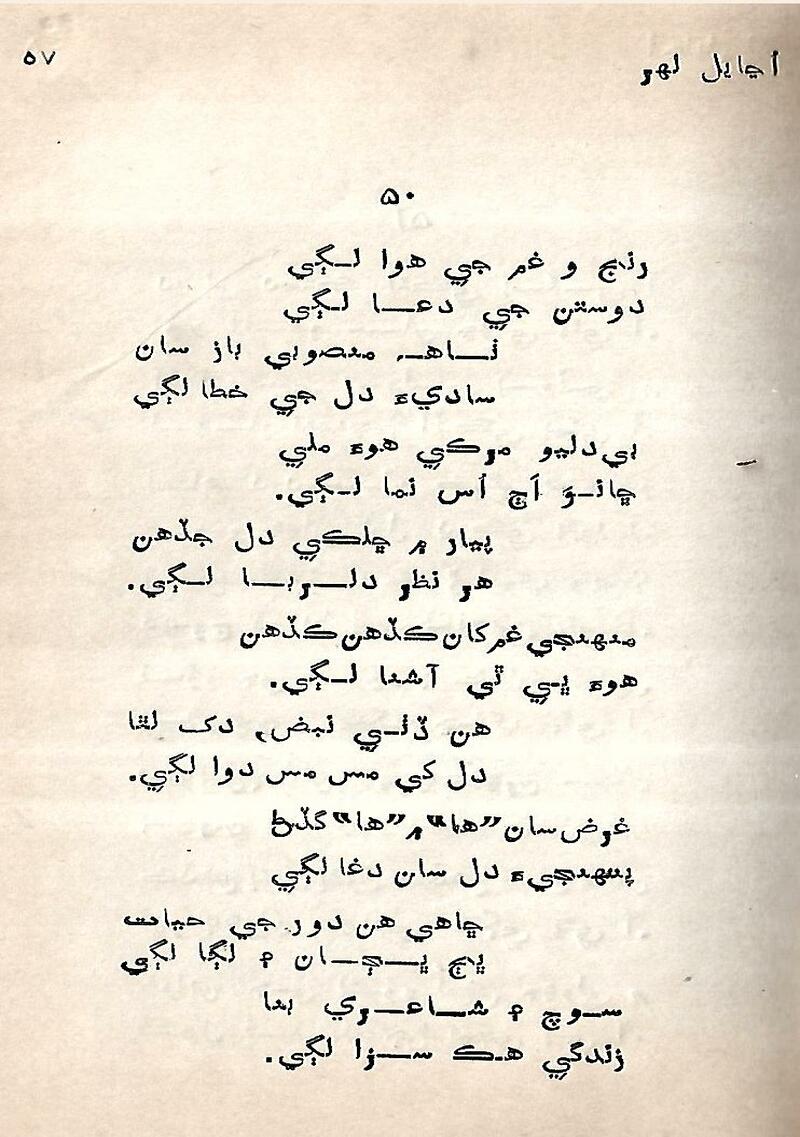 اڃايل لهر
۵۷
۵۰
رنج و غم جي هوا لڳي
دوستن جي دعا لڳي
ناهہ منصوبي باز سان
ساديءَ دل جي خطا لڳي
بي دليو مرڪي هوءَ ملي
ڇانوَ اَڄ اُس نما لڳي.
پيار ۾ ڇلڪي دل جڏهن
هر نظر دلربا لڳي.
منهنجي غم کان ڪڏهن ڪڏهن
هوءَ ڀي ٿي آشنا لڳي.
هن ڏٺي نبض، دک لٿا
دل کي مس مس دوا لڳي.
غرض سان ”ها“ ۾ ”ها“ گڏڻ
پنهنجيءَ دل سان دغا لڳي
ڇاهي هن دور جي حيات
ڀڄ ڀڄان ۾ لڳا لڳي
سوچ ۾ شاعري بنا
زندگي هڪ سزا لڳي.